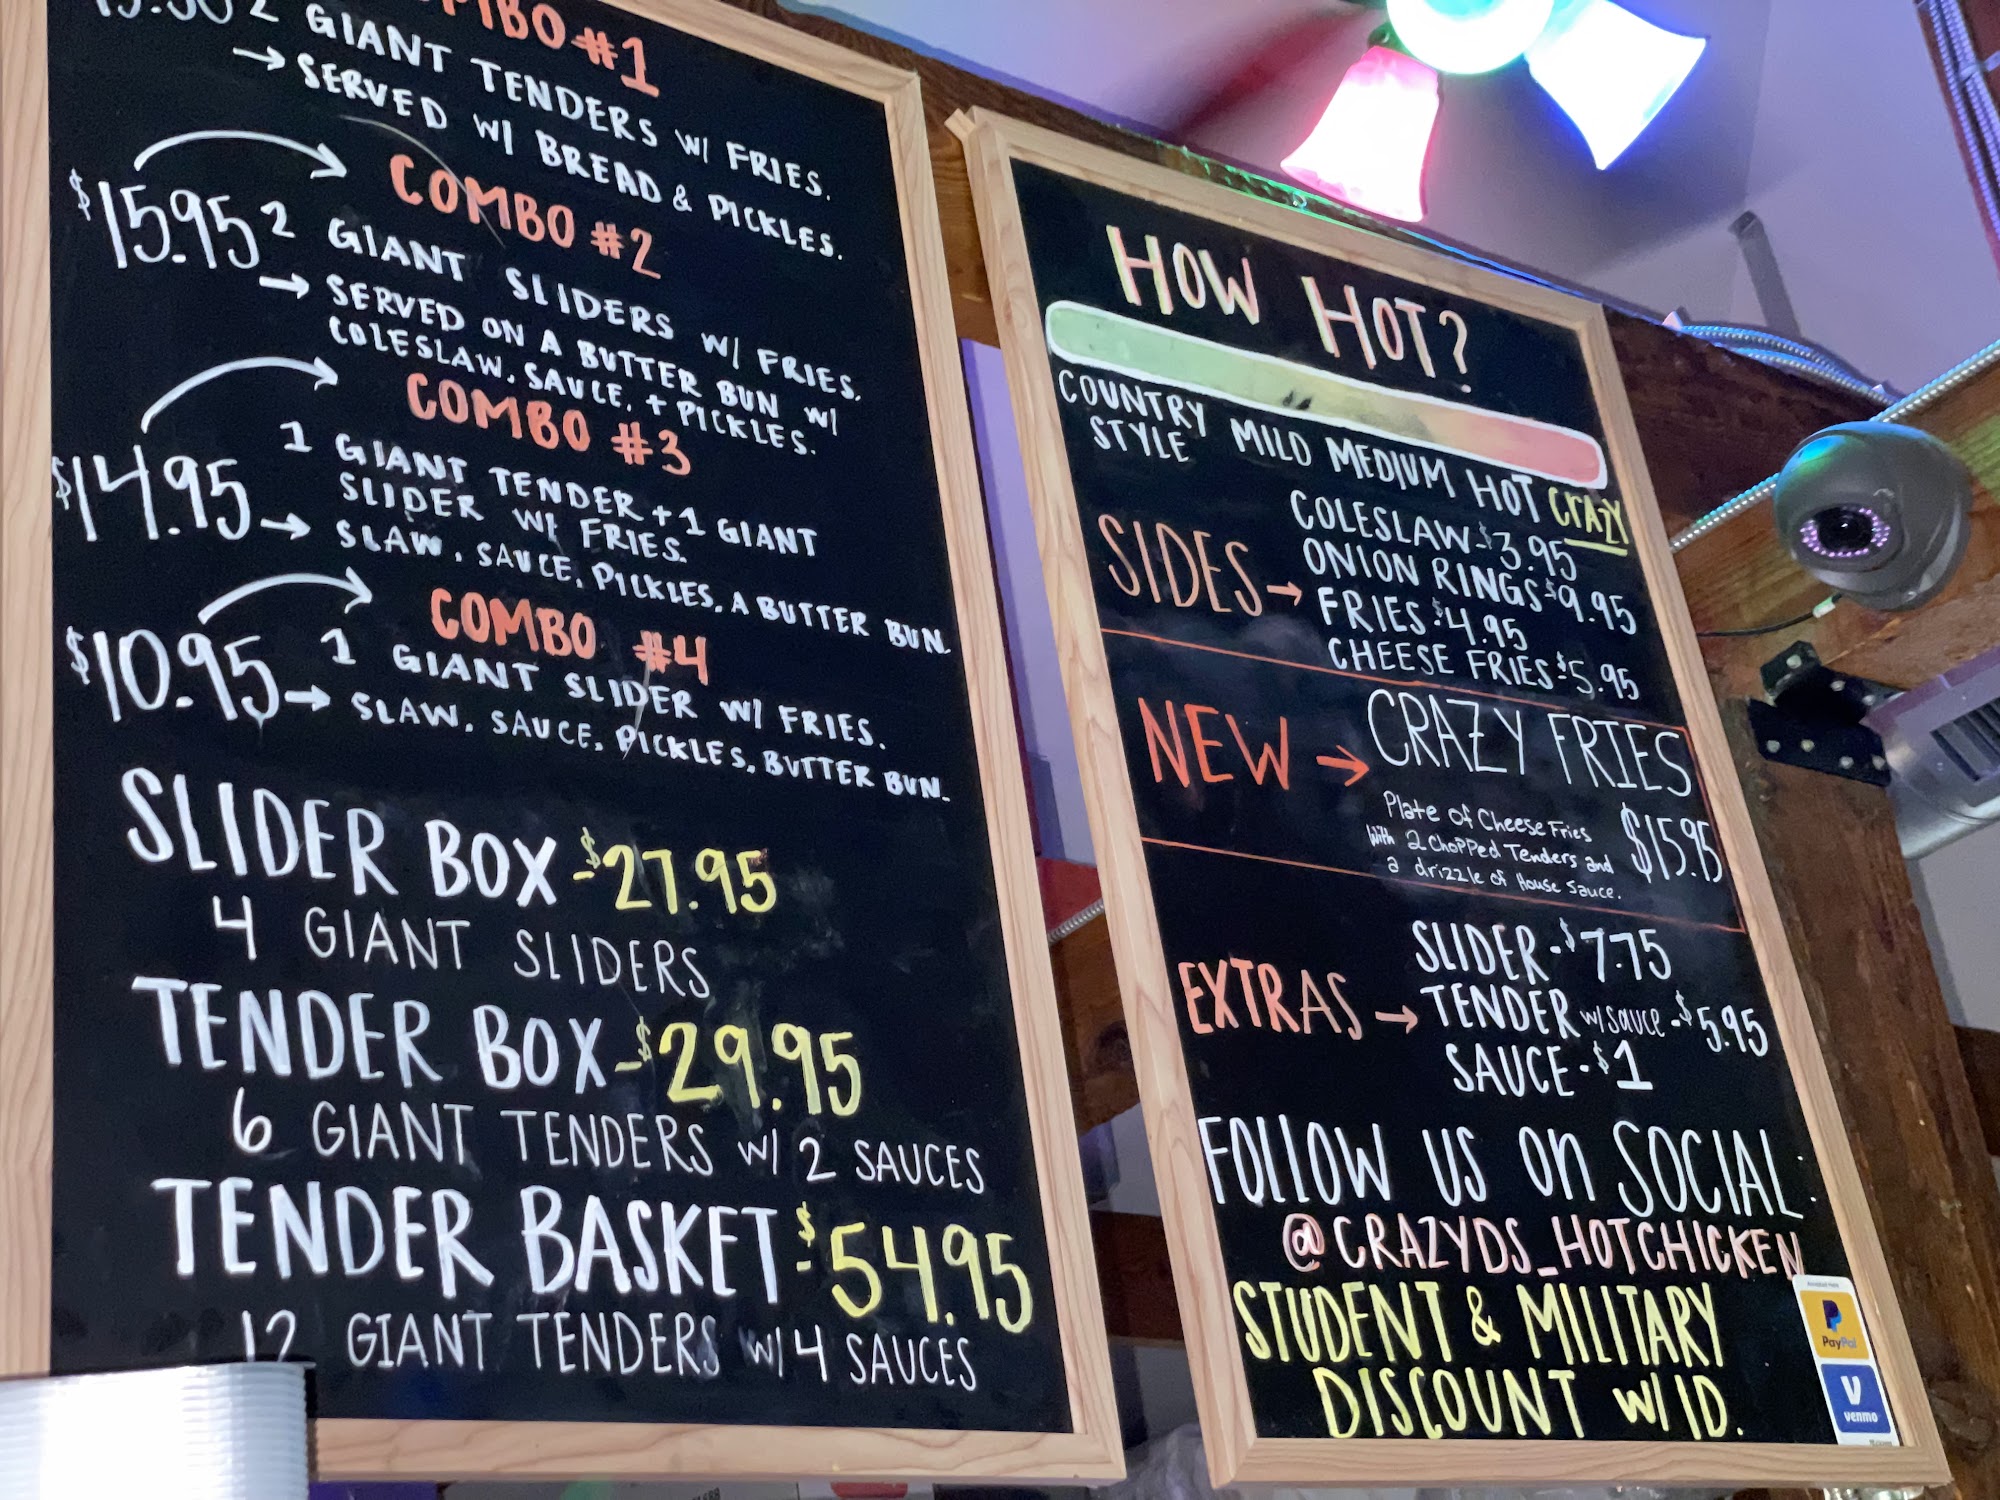 COMBO #1
2 GIANT TENDERS W/ FRIES.
→ SERVED W/ BREAD & PICKLES.
COMBO #2
$15.95 2 GIANT SLIDERS W/ FRIES.
→ SERVED ON A BUTTER BUN W/
COLESLAW, SAUCE, + PICKLES.
COMBO #3
$14.95 1 GIANT TENDER + 1 GIANT
SLIDER W/ FRIES.
→ SLAW, SAUCE, PICKLES, A BUTTER BUN.
COMBO #4
$10.95 1 GIANT SLIDER W/ FRIES.
→ SLAW, SAUCE, PICKLES, BUTTER BUN.
SLIDER BOX - $27.95
4 GIANT SLIDERS
TENDER BOX - $29.95
6 GIANT TENDERS W/ 2 SAUCES
TENDER BASKET - $54.95
12 GIANT TENDERS W/ 4 SAUCES
HOW HOT?
COUNTRY STYLE MILD MEDIUM HOT CRAZY
SIDES →
COLESLAW - $3.95
ONION RINGS $9.95
FRIES - $4.95
CHEESE FRIES - $5.95
NEW → CRAZY FRIES
Plate of Cheese Fries
With 2 Chopped Tenders and
a drizzle of House Sauce.
$15.95
EXTRAS →
SLIDER - $7.75
TENDER w/ sauce - $5.95
SAUCE - $1
FOLLOW US on SOCIAL:
@CRAZYDS_HOTCHICKEN
STUDENT & MILITARY
DISCOUNT W/ ID.
PayPal
venmo